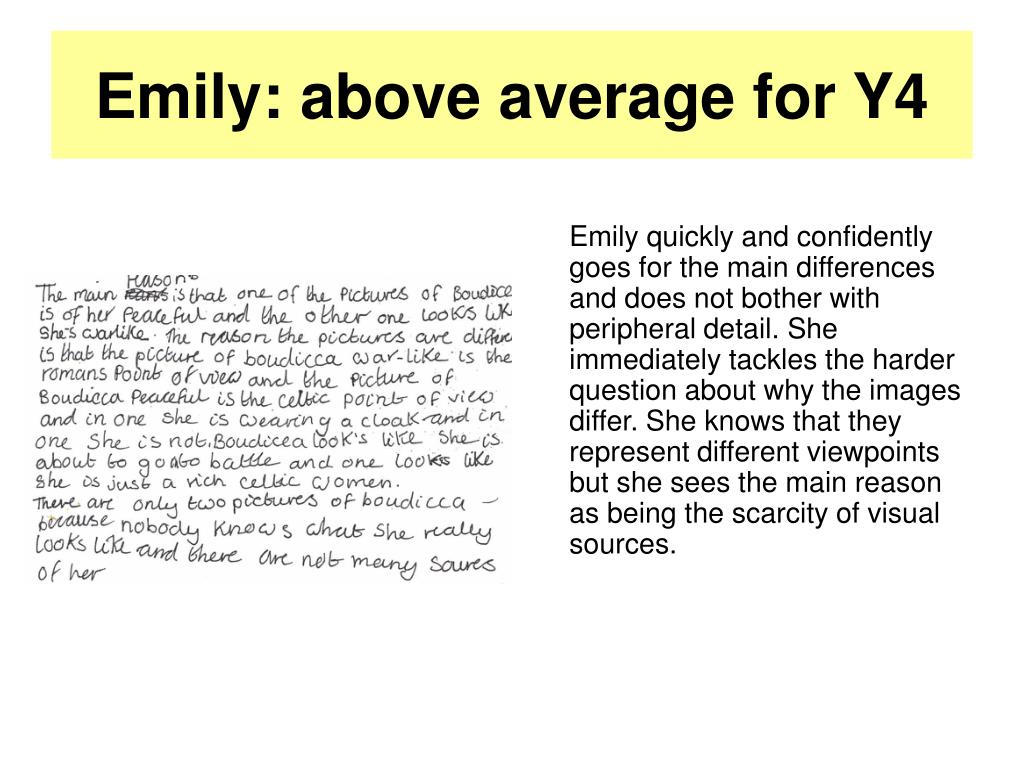 Emily: above average for Y4
reasons
The main is that one of the Pictures of Boudicc
is of her Peaceful and the other one looks lik
She's warlike. The reason the pictures are differe
is that the picture of boudicca war-like is the
romans Point of view and the Picture of
Boudicca Peaceful is the celtic point of view
and in one she is wearing a cloak and in
one She is not. Boudicea look's like She is
about to go onto battle and one looks like
She is just a rich celtic women.
There are only two pictures of boudicca –
because nobody knows what She really
looks like and there are not many Soures
of her
Emily quickly and confidently
goes for the main differences
and does not bother with
peripheral detail. She
immediately tackles the harder
question about why the images
differ. She knows that they
represent different viewpoints
but she sees the main reason
as being the scarcity of visual
sources.